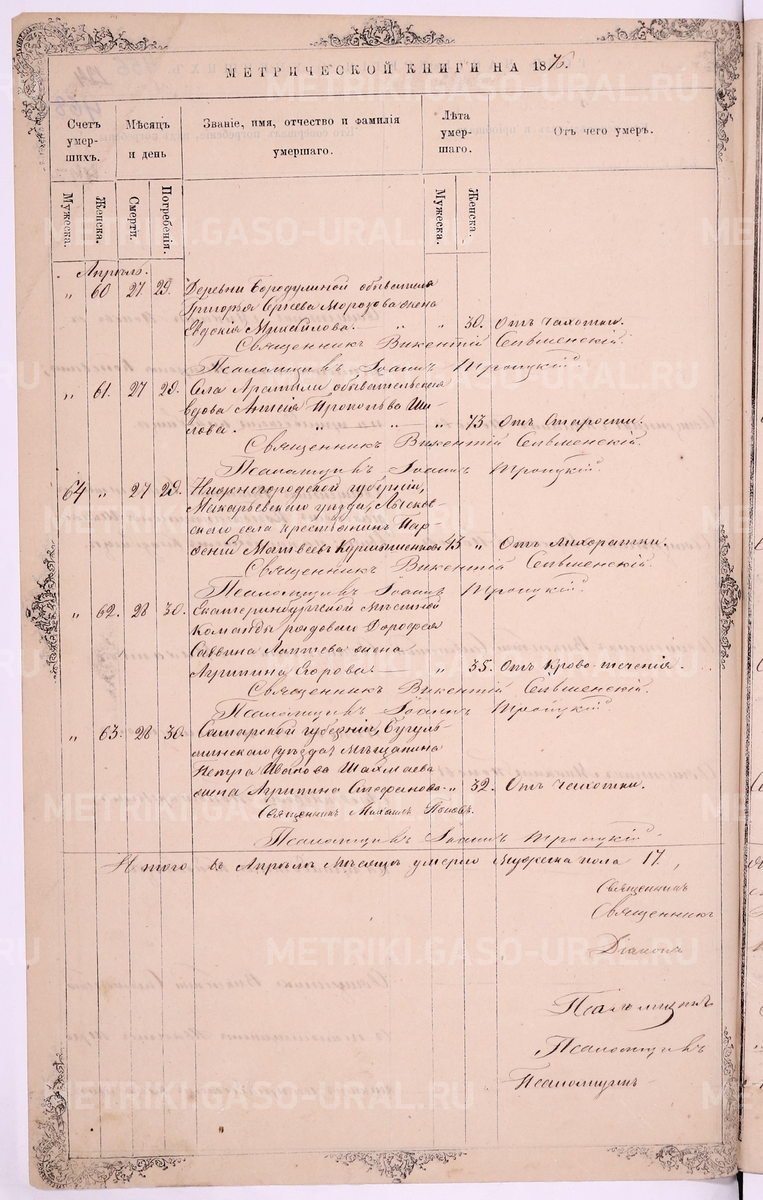 МЕТРИЧЕСКОЙ КНИГИ НА 1876.
Счетъ умер-шихъ.
Мѣсяцъ и день
Званіе, имя, отчество и фамилія умершаго.
Лѣта умер-шаго.
Отъ чего умеръ.
Мужеска.
Женска.
Смерти.
Погребенія.
Мужеска.
Женска.
Апрѣль.
" 60 27 29. Деревни Бородулиной обывателя
Григорья Сергѣева Морозова жена
Евдокія " " 30. Отъ чахотки.
Священникъ Викентій
Псаломщикъ Іоаннъ Троицкій.
" 61. 27 29. Села Арамили обывательская
вдова Прокопьева Ши-
лова. " " 73 Отъ старости.
Священникъ Викентій
Псаломщикъ Іоаннъ Троицкій.
64 " 27 29. Нижнегородской губерніи,
Макарьевскаго уѣзда, Лысков-
скаго села крестьянинъ Пар-
феній Матвѣевъ 45 " Отъ лихорадки.
Священникъ Викентій
Псаломщикъ Іоаннъ Троицкій
" 62. 28 30. Екатеринбургской мѣстной
команды рядоваго Дорофея
Саввина Лаптева жена
Агрипина Егорова. " 35. Отъ крово-теченія.
Священникъ Викентій
Псаломщикъ Іоаннъ Троицкій
" 63. 28 30. Самарской губерніи, Бугуль-
минскаго уѣзда мѣщанина
Петра Иванова Шахмаева
жена Агрипина Стефанова " 32. Отъ чахотки.
Священникъ Михаилъ Поповъ.
Псаломщикъ Іоаннъ Троицкій.
Итого въ Апрѣлѣ мѣсяцѣ умерло мужеска пола 17,
Священникъ
Священникъ
Діаконъ
Псаломщикъ
Псаломщикъ
Псаломщикъ
METRIKI.GASO-URAL.RU